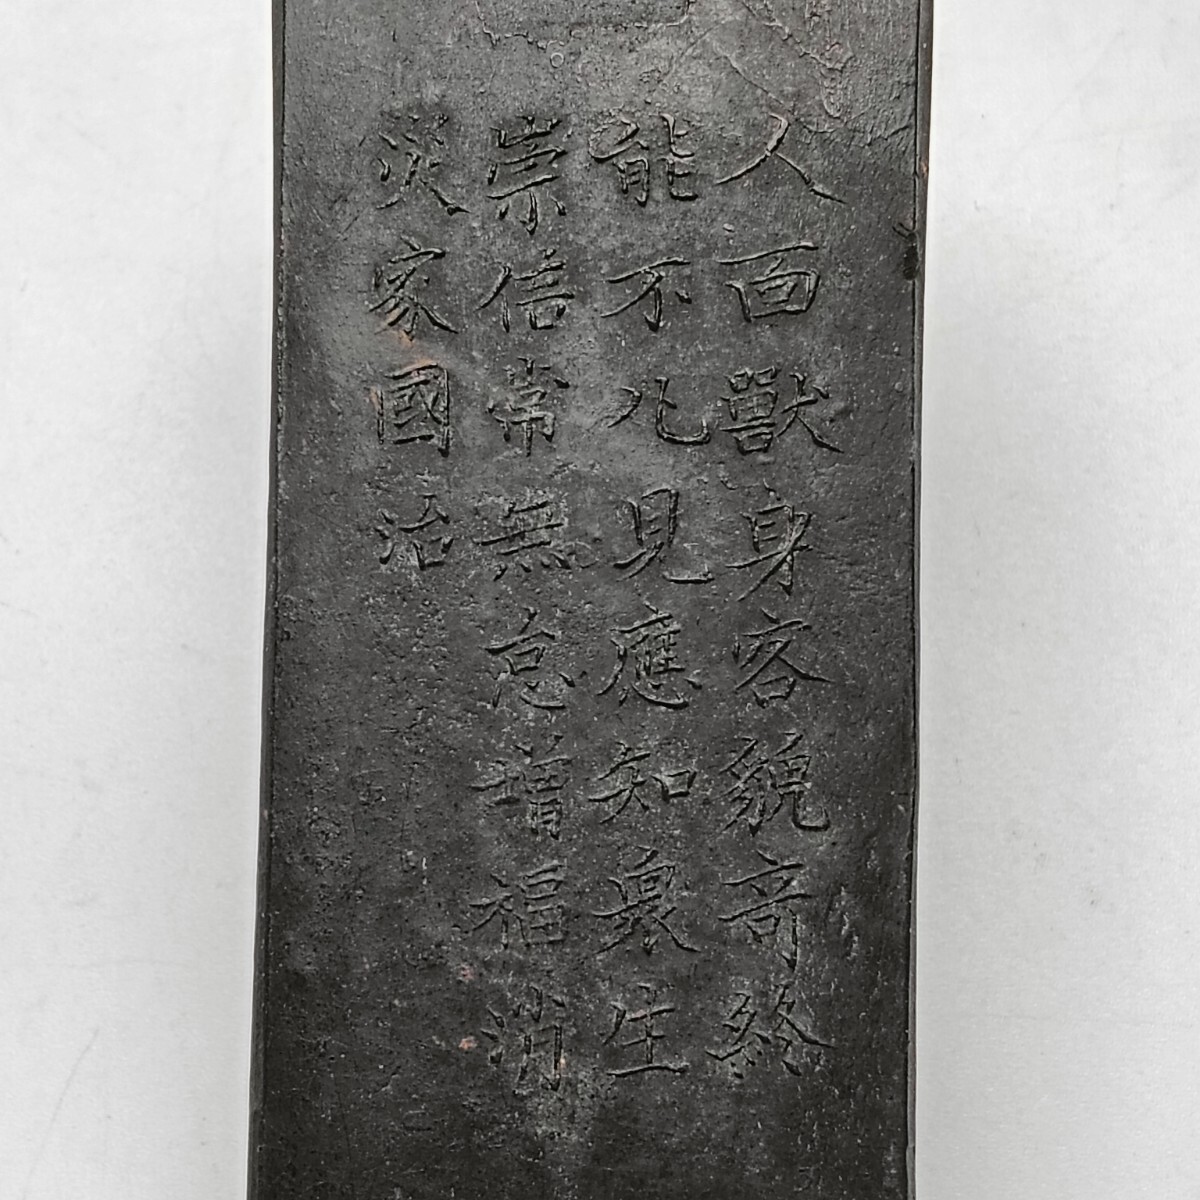 人面獸身容貌奇終
能不凡見應知衆生
崇信常無怠增福消
災家國治